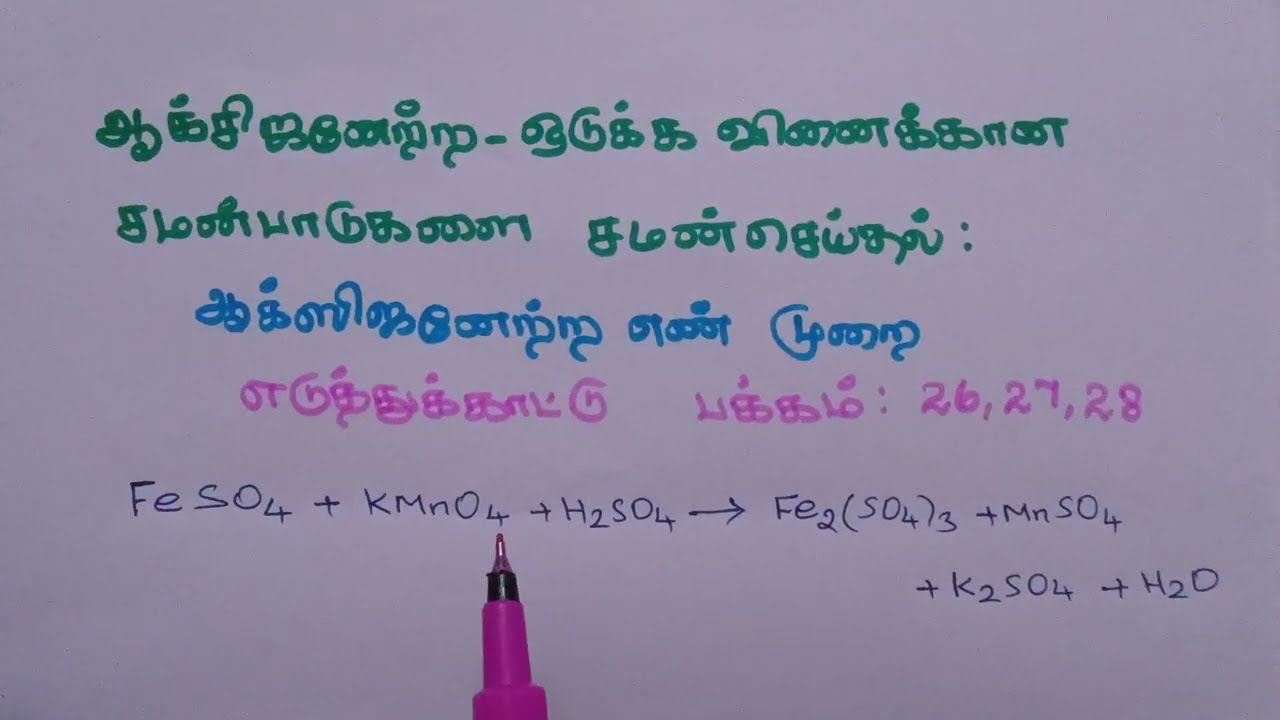 ஆக்சிஜனேற்ற - ஒடுக்க வினைக்கான
சமன்பாடுகளை சமன்செய்தல் :
ஆக்ஸிஜனேற்ற எண் முறை
எடுத்துக்காட்டு பக்கம் : 26, 27, 28
FeSO₄ + KMnO₄ + H₂SO₄ → Fe₂(SO₄)₃ + MnSO₄
+ K₂SO₄ + H₂O